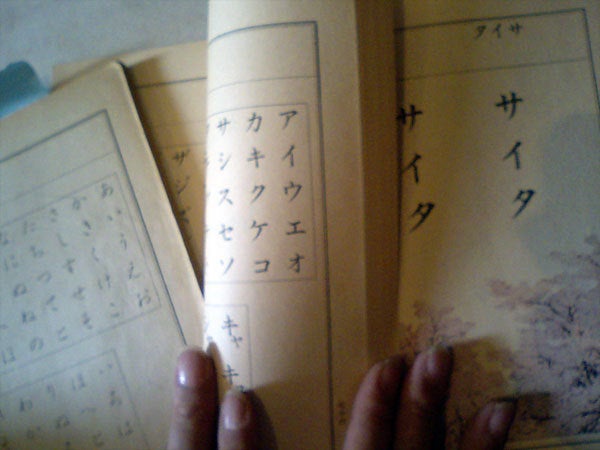 サイタ
サイタ
サイタ
アイウエオ
カキクケコ
サシスセソ
キャ
ザジ
あいうえお
かきくけこ
さしすせそ
たちつてと
なにぬねの